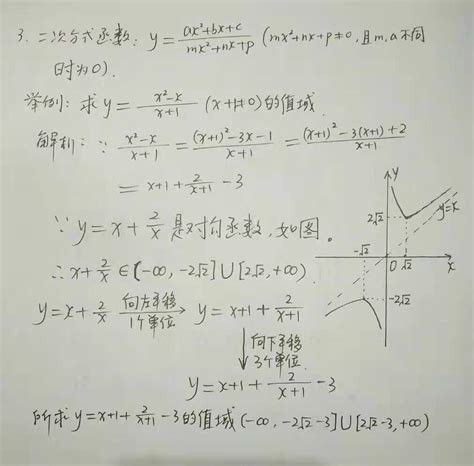 3. 二次分式函数: y = (ax²+bx+c)/(mx²+nx+p) (mx²+nx+p≠0, 且m,a不同
时为0).
举例: 求 y = (x²-x)/(x+1) (x+1≠0) 的值域.
解析: ∵ (x²-x)/(x+1) = ((x+1)²-3x-1)/(x+1) = ((x+1)²-3(x+1)+2)/(x+1)
= x+1+2/(x+1) -3
∵ y = x+2/x 是对勾函数, 如图。
∴ x+2/x ∈ (-∞, -2√2]∪[2√2, +∞)
y = x+2/x 向左平移1个单位→ y = x+1+2/(x+1)
↓ 向下平移3个单位
y = x+1+2/(x+1) -3
所求 y = x+1+2/(x+1) -3 的值域 (-∞, -2√2-3]∪[2√2-3, +∞)
y
y=x
2√2
-√2
O
√2
x
-2√2